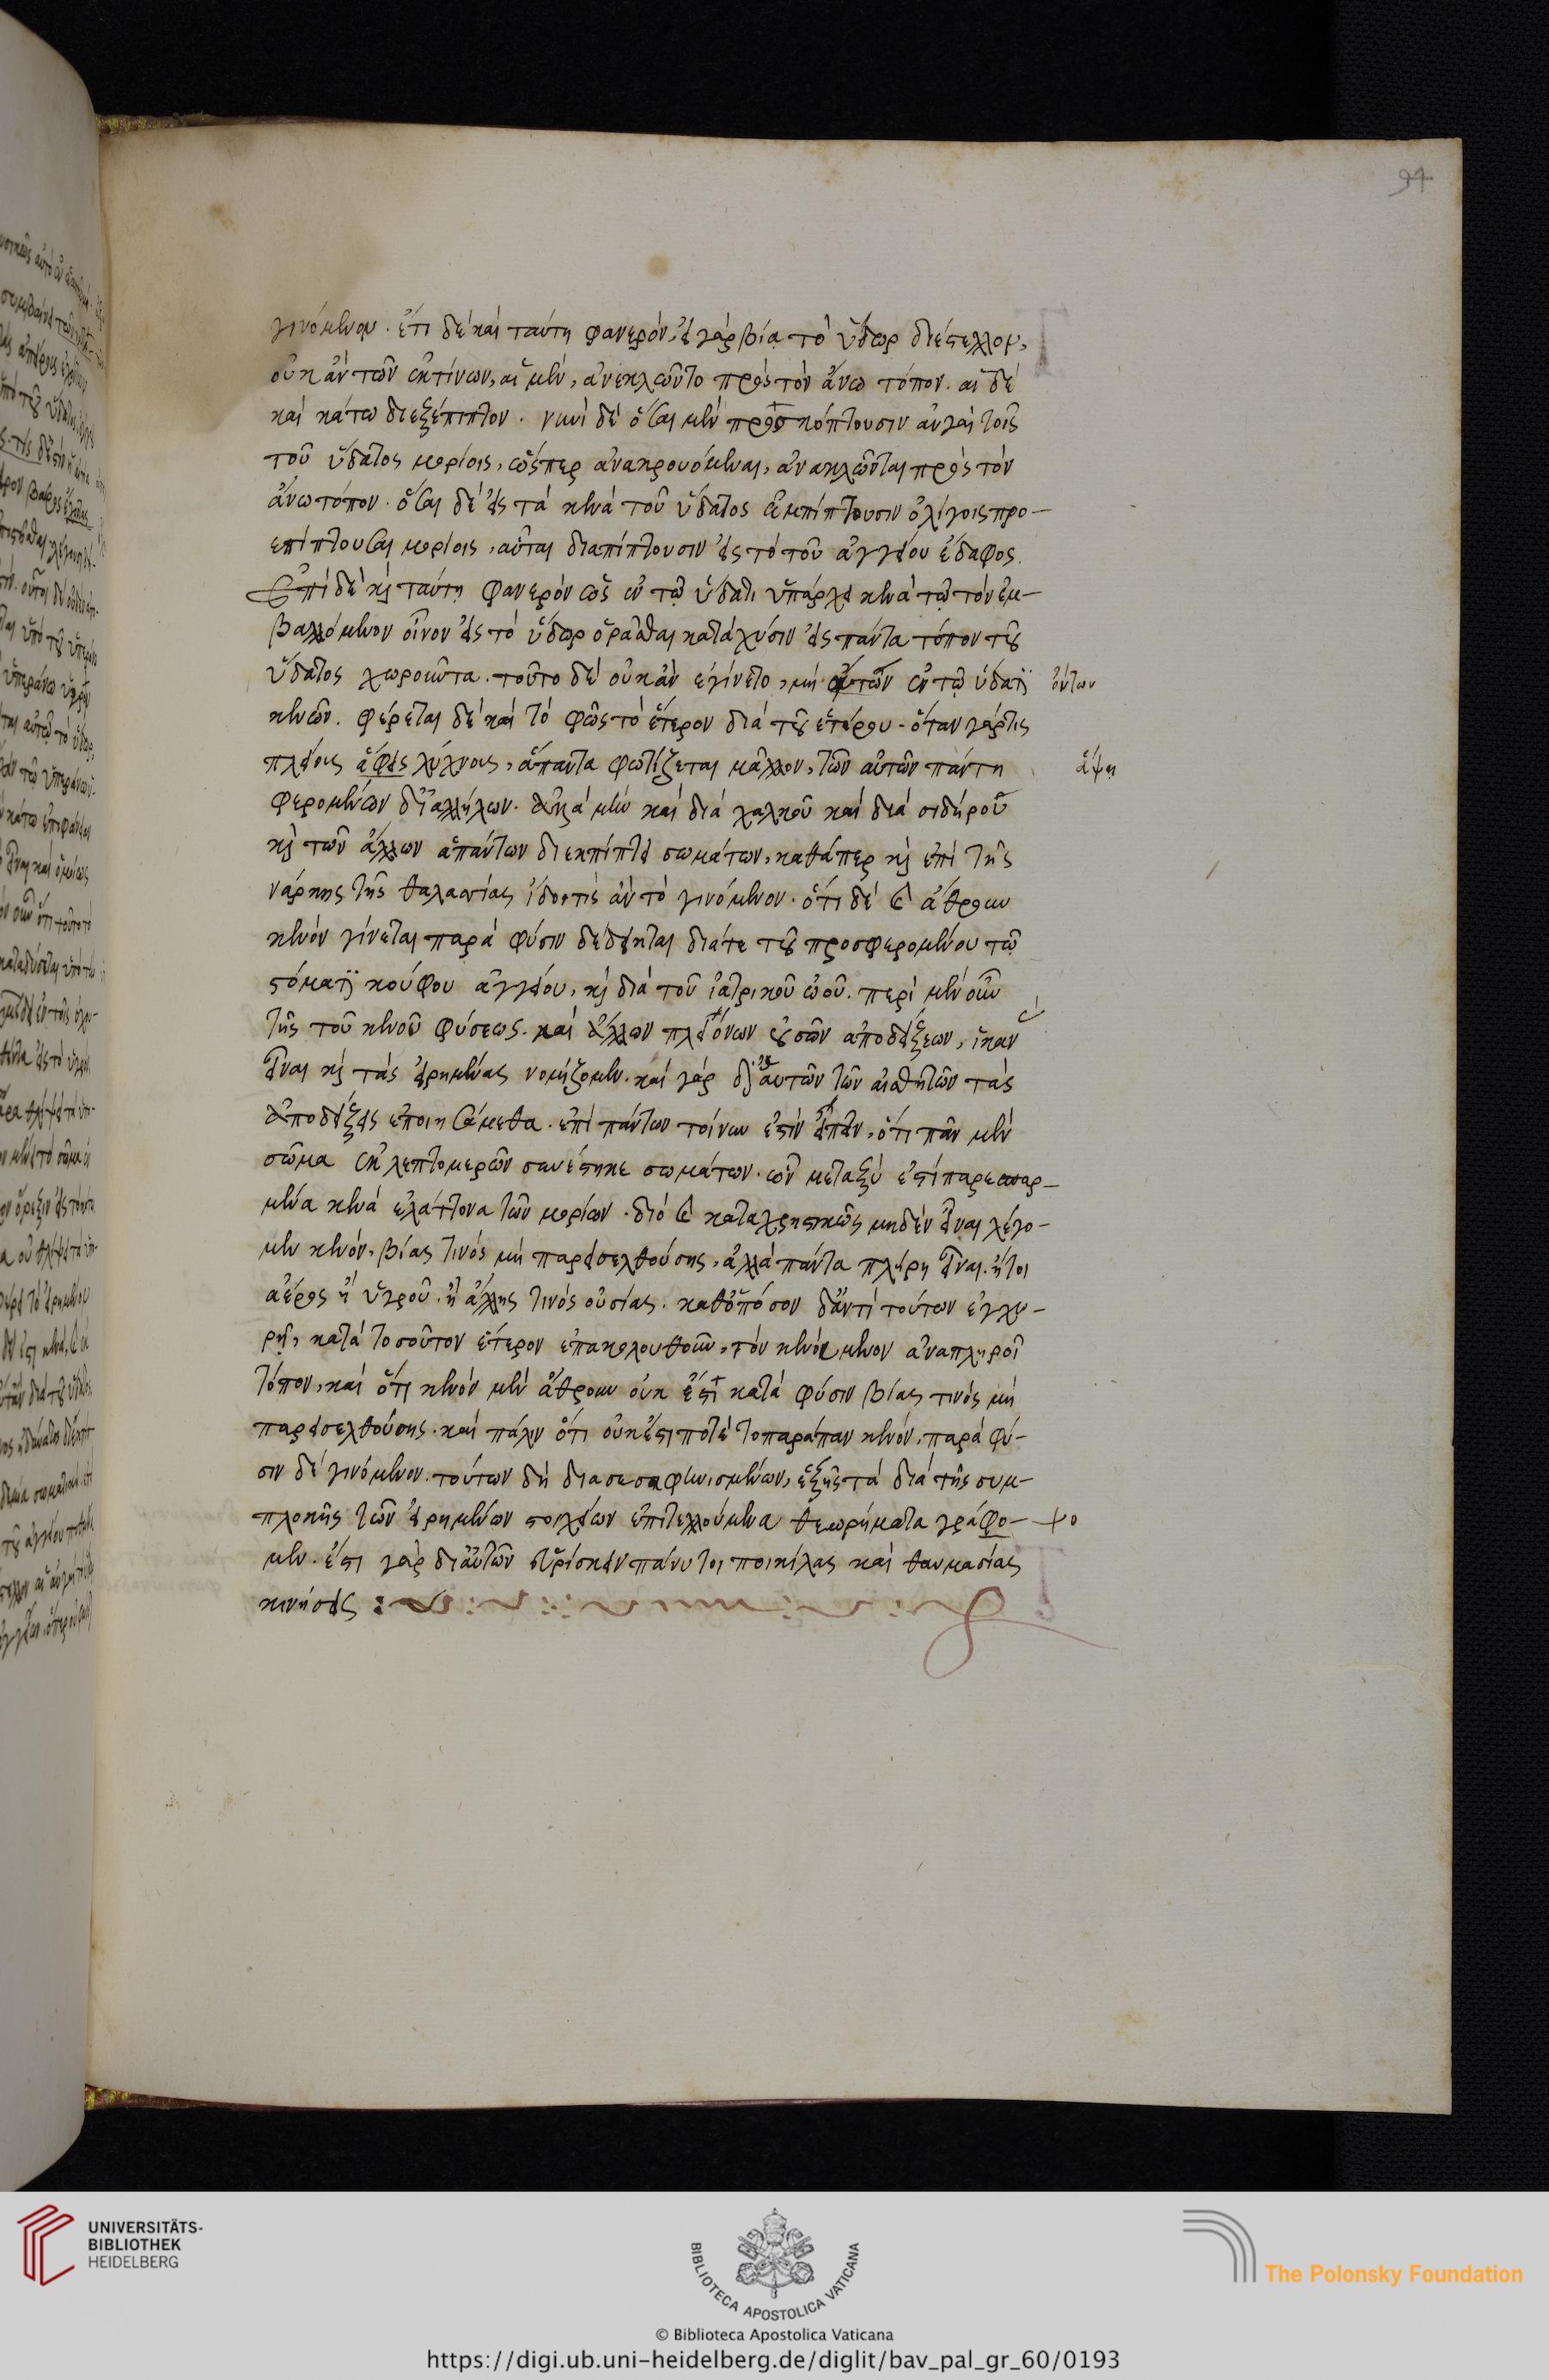 94
γινόμενον. ἔτι δὲ καὶ ταύτη φανερόν, εἰ γὰρ βία τὸ ὕδωρ διέστελλον,
οὐκ ἂν τῶν ἀκτίνων, αἱ μὲν, ἀνεκλῶντο πρὸς τὸν ἄνω τόπον. αἱ δὲ
καὶ κάτω διεξέπιπτον. νυνὶ δὲ ὅσαι μὲν προσκόπτουσιν αὐγαὶ τοῖς
τοῦ ὕδατος μορίοις, ὥσπερ ἀνακρουόμεναι, ἀνακλῶνται πρὸς τὸν
ἄνω τόπον. ὅσαι δὲ εἰς τὰ κενὰ τοῦ ὕδατος ἐμπίπτουσιν ὀλίγοις προσ-
επίπτουσαι μορίοις, αὗται διαπίπτουσιν εἰς τὸ τοῦ ἀγγείου ἔδαφος.
Ἐπὶ δὲ καὶ ταύτη φανερὸν ὡς ἐν τῷ ὕδατι ὑπάρχει κενὰ τῷ τὸν ἐμ-
βαλλόμενον οἶνον εἰς τὸ ὕδωρ ὁρᾶσθαι κατὰ χύσιν εἰς πάντα τόπον τοῦ
ὕδατος χωροῦντα. τοῦτο δὲ οὐκ ἂν ἐγίνετο, μὴ αὐτῶν ἐν τῷ ὕδατι ὄντων
κενῶν. φέρεται δὲ καὶ τὸ φῶς τὸ ἕτερον διὰ τοῦ ἑτέρου. ὅταν γάρ τις
πλείοις ἅφεις λύχνοις, ἅπαντα φωτίζεται μᾶλλον, τῶν αὐτῶν πάντη ἅψη
φερομένων δι' ἀλλήλων. ἀλλὰ μὲν καὶ διὰ χαλκοῦ καὶ διὰ σιδήρου
καὶ τῶν ἄλλων ἁπάντων διεκπίπτει σωμάτων, καθάπερ καὶ ἐπὶ τῆς
νάρκης τῆς θαλασσίας ἴδοι τις ἂν τὸ γινόμενον. ὅτι δὲ καὶ ἄθρουν
κενὸν γίνεται παρὰ φύσιν δέδεικται διά τε τοῦ προσφερομένου τῷ
στόματι κούφου ἀγγείου, καὶ διὰ τοῦ ἰατρικοῦ ὠοῦ. περὶ μὲν οὖν
τῆς τοῦ κενοῦ φύσεως. καὶ ἄλλων πλειόνων οὐσῶν ἀποδείξεων, ἱκανὰς
εἶναι καὶ τὰς εἰρημένας νομίζομεν. καὶ γὰρ δι' αὐτῶν τῶν αἰσθητῶν τὰς
ἀποδείξεις ἐποιησάμεθα. ἐπὶ πάντων τοίνυν ἐστὶν εἰπεῖν, ὅτι πᾶν μὲν
σῶμα ἐκ λεπτομερῶν συνέστηκε σωμάτων. ὧν μεταξύ ἐστι παρεσπαρ-
μένα κενὰ ἐλάττονα τῶν μορίων. διὸ καὶ καταχρηστικῶς μηδὲν εἶναι λέγο-
μεν κενόν, βίας τινὸς μὴ παρεισελθούσης, ἀλλὰ πάντα πλήρη εἶναι. ἤτοι
ἀέρος ἢ ὑγροῦ. ἢ ἄλλης τινὸς οὐσίας. καθ' ὁπόσον δ' ἂν τι τούτων ἐγχω-
ρῇ, κατὰ τοσοῦτον ἕτερον ἐπακολουθοῦν, τὸν κενούμενον ἀναπληροῖ
τόπον, καὶ ὅτι κενὸν μὲν ἄθρουν οὐκ ἔστι κατὰ φύσιν βίας τινὸς μὴ
παρεισελθούσης. καὶ πάλιν ὅτι οὐκ ἔστι ποτὲ τοπαράπαν κενόν, παρὰ φύ-
σιν δὲ γινόμενον. τούτων δὴ διασεσαφηνισμένων, ἑξῆς τὰ διὰ τῆς συμ-
πλοκῆς τῶν εἰρημένων στοιχείων ἐπιτελλούμενα θεωρήματα γράφο- ψο
μεν. ἔστι γὰρ δι' αὐτῶν εὑρίσκειν πάνυ τοι ποικίλας καὶ θαυμασίας
κινήσεις
UNIVERSITÄTS-
BIBLIOTHEK
HEIDELBERG
BIBLIOTECA APOSTOLICA VATICANA
The Polonsky Foundation
© Biblioteca Apostolica Vaticana
https://digi.ub.uni-heidelberg.de/diglit/bav_pal_gr_60/0193